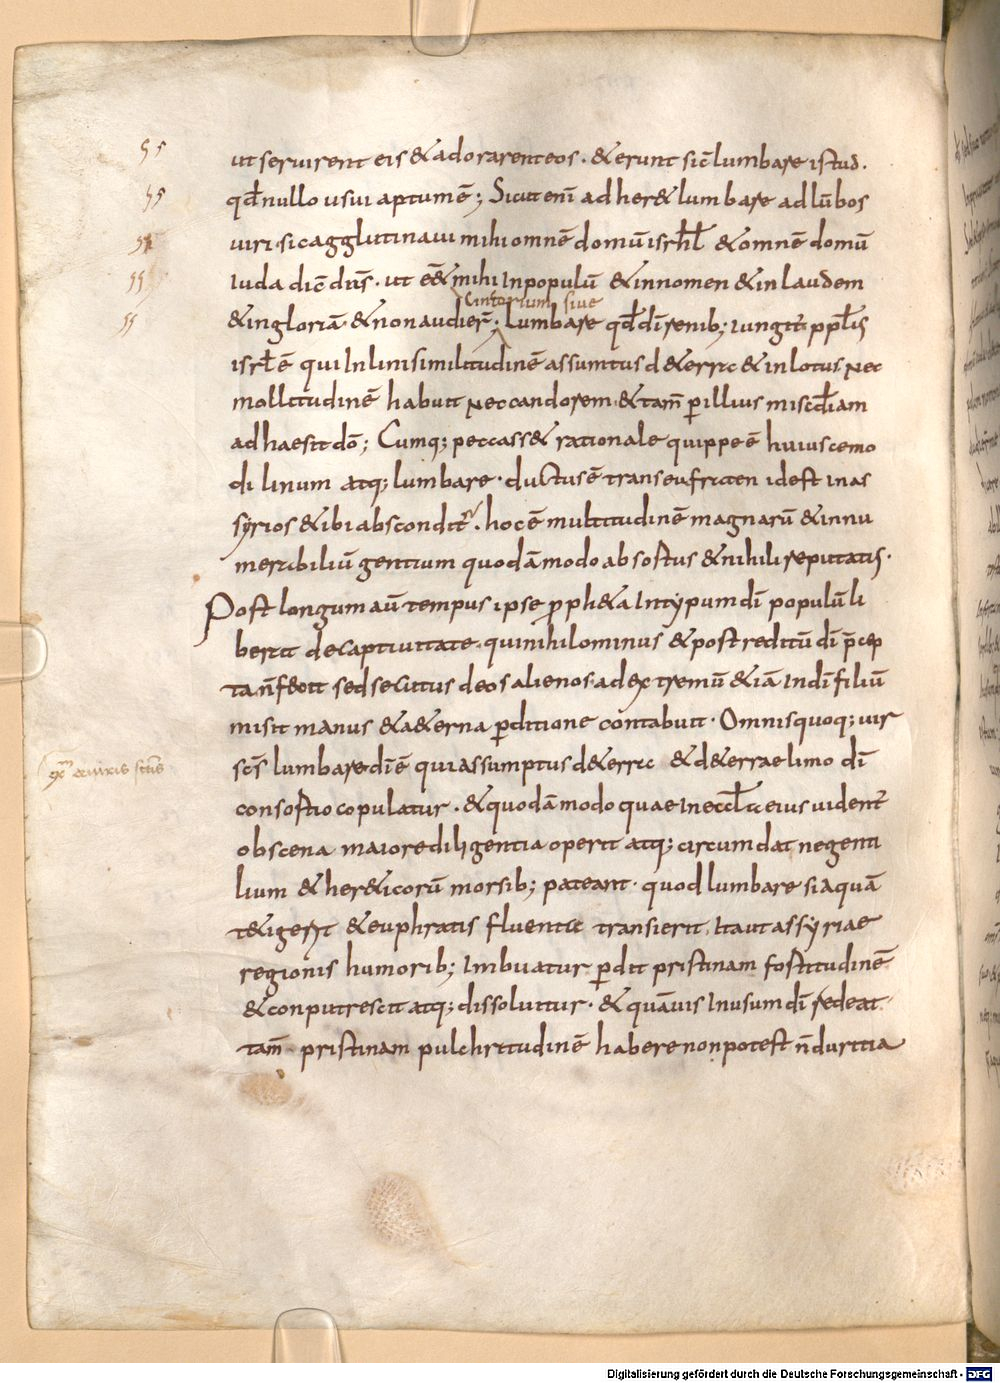 ut seruirent eis & adorarent eos · & erunt sic̄ lumbare istud .
qd̄ nullo usui aptum ē ; Sicut eni᷄ adher& lumbare ad lūbos
uiri · sic agglutinaui mihi omnē domū isrƚ & omnē domū
Iuda dic̄ dn̄s · ut eē& mihi In populū & in nomen & in laudem
cintorium siue
& in gloriā · & non audier̄ ; Lumbare qd̄ dī renib; iungit᷑ ppƚs
isrƚ ē qui In lini similitudinē assumtus d& erra & inlotus nec
mollitudinē habuit nec candorem · & tam̄ p̄ illius misc̄diam
adhaesit dō ; Cumq; peccass& rationale quippe ē huiuscemo
di linum atq; lumbare · ductus ē trans eufraten id est in as
syrios & ibi absconditᷣ · hoc ē multitudinē magnarū & innu
merabiliū gentium quodāmodo absortus & nihili reputatis ·
Post longum aū tempus ipse proph&a In typum dī populū li
berat de captiuitate · qui nihilominus & post reditū dī p̄cep
ta n̄ fecit sed secutus deos alienos · ad extremū & iā In dī filiū
misit manus & a&erna p̄ditione contabuit · Omnis quoq; uir
sc̄s lumbare dī ē qui assumptus d& erra & d& errae limo dī
consortio copulatur . & quodāmodo quae In eccƚa eius uident᷑
obscena maiore diligentia operit atq; circumdat ne genti
lium & her&icorū morsib; pateant · quod lumbare si aquā
t&igerit & euphratis fluenta transierit · Ita ut assyriae
regionis humorib; Imbuatur p̄dit pristinam fortitudinē
& conputrescit atq; dissoluitur · & quāuis In usum dī redeat
tam̄ pristinam pulchritudinē habere non potest n̄ duritia
Digitalisierung gefördert durch die Deutsche Forschungsgemeinschaft - DFG